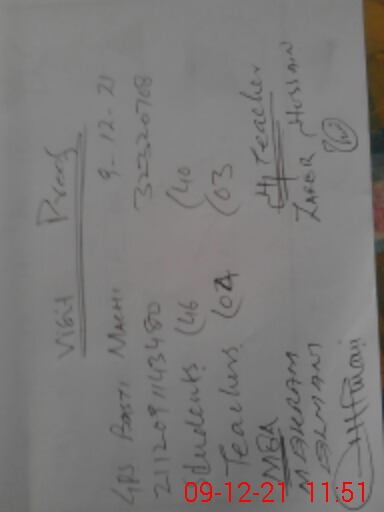 Visit Proof
GPS BASTI MACHI 9-12-21
2112091143480 32320768
Students (46 (40
Teachers (04 (03
MEA H Teacher
M AKRAM ZAFER HUSSAIN
USMANI
09-12-21 11:51